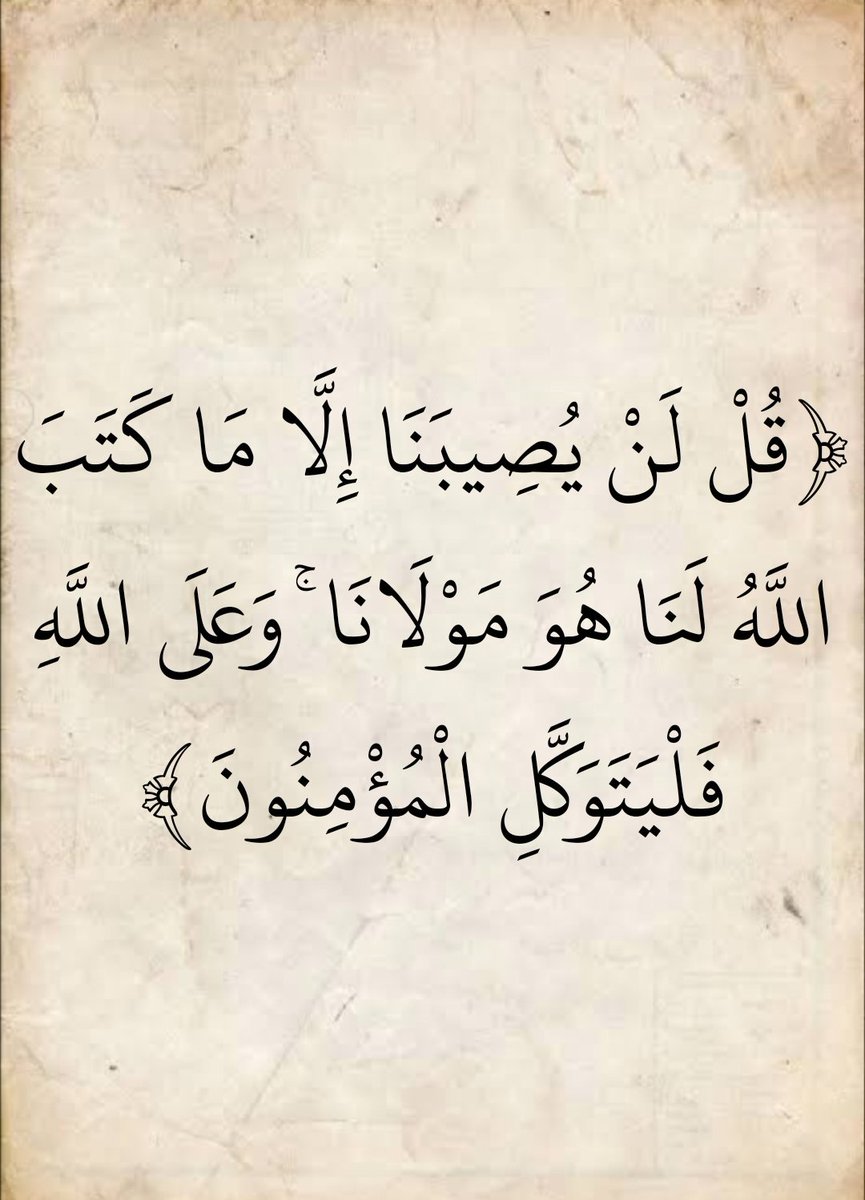 ﴿قُلْ لَنْ يُصِيبَنَا إِلَّا مَا كَتَبَ
اللَّهُ لَنَا هُوَ مَوْلَانَا ۚ وَعَلَى اللَّهِ
فَلْيَتَوَكَّلِ الْمُؤْمِنُونَ﴾